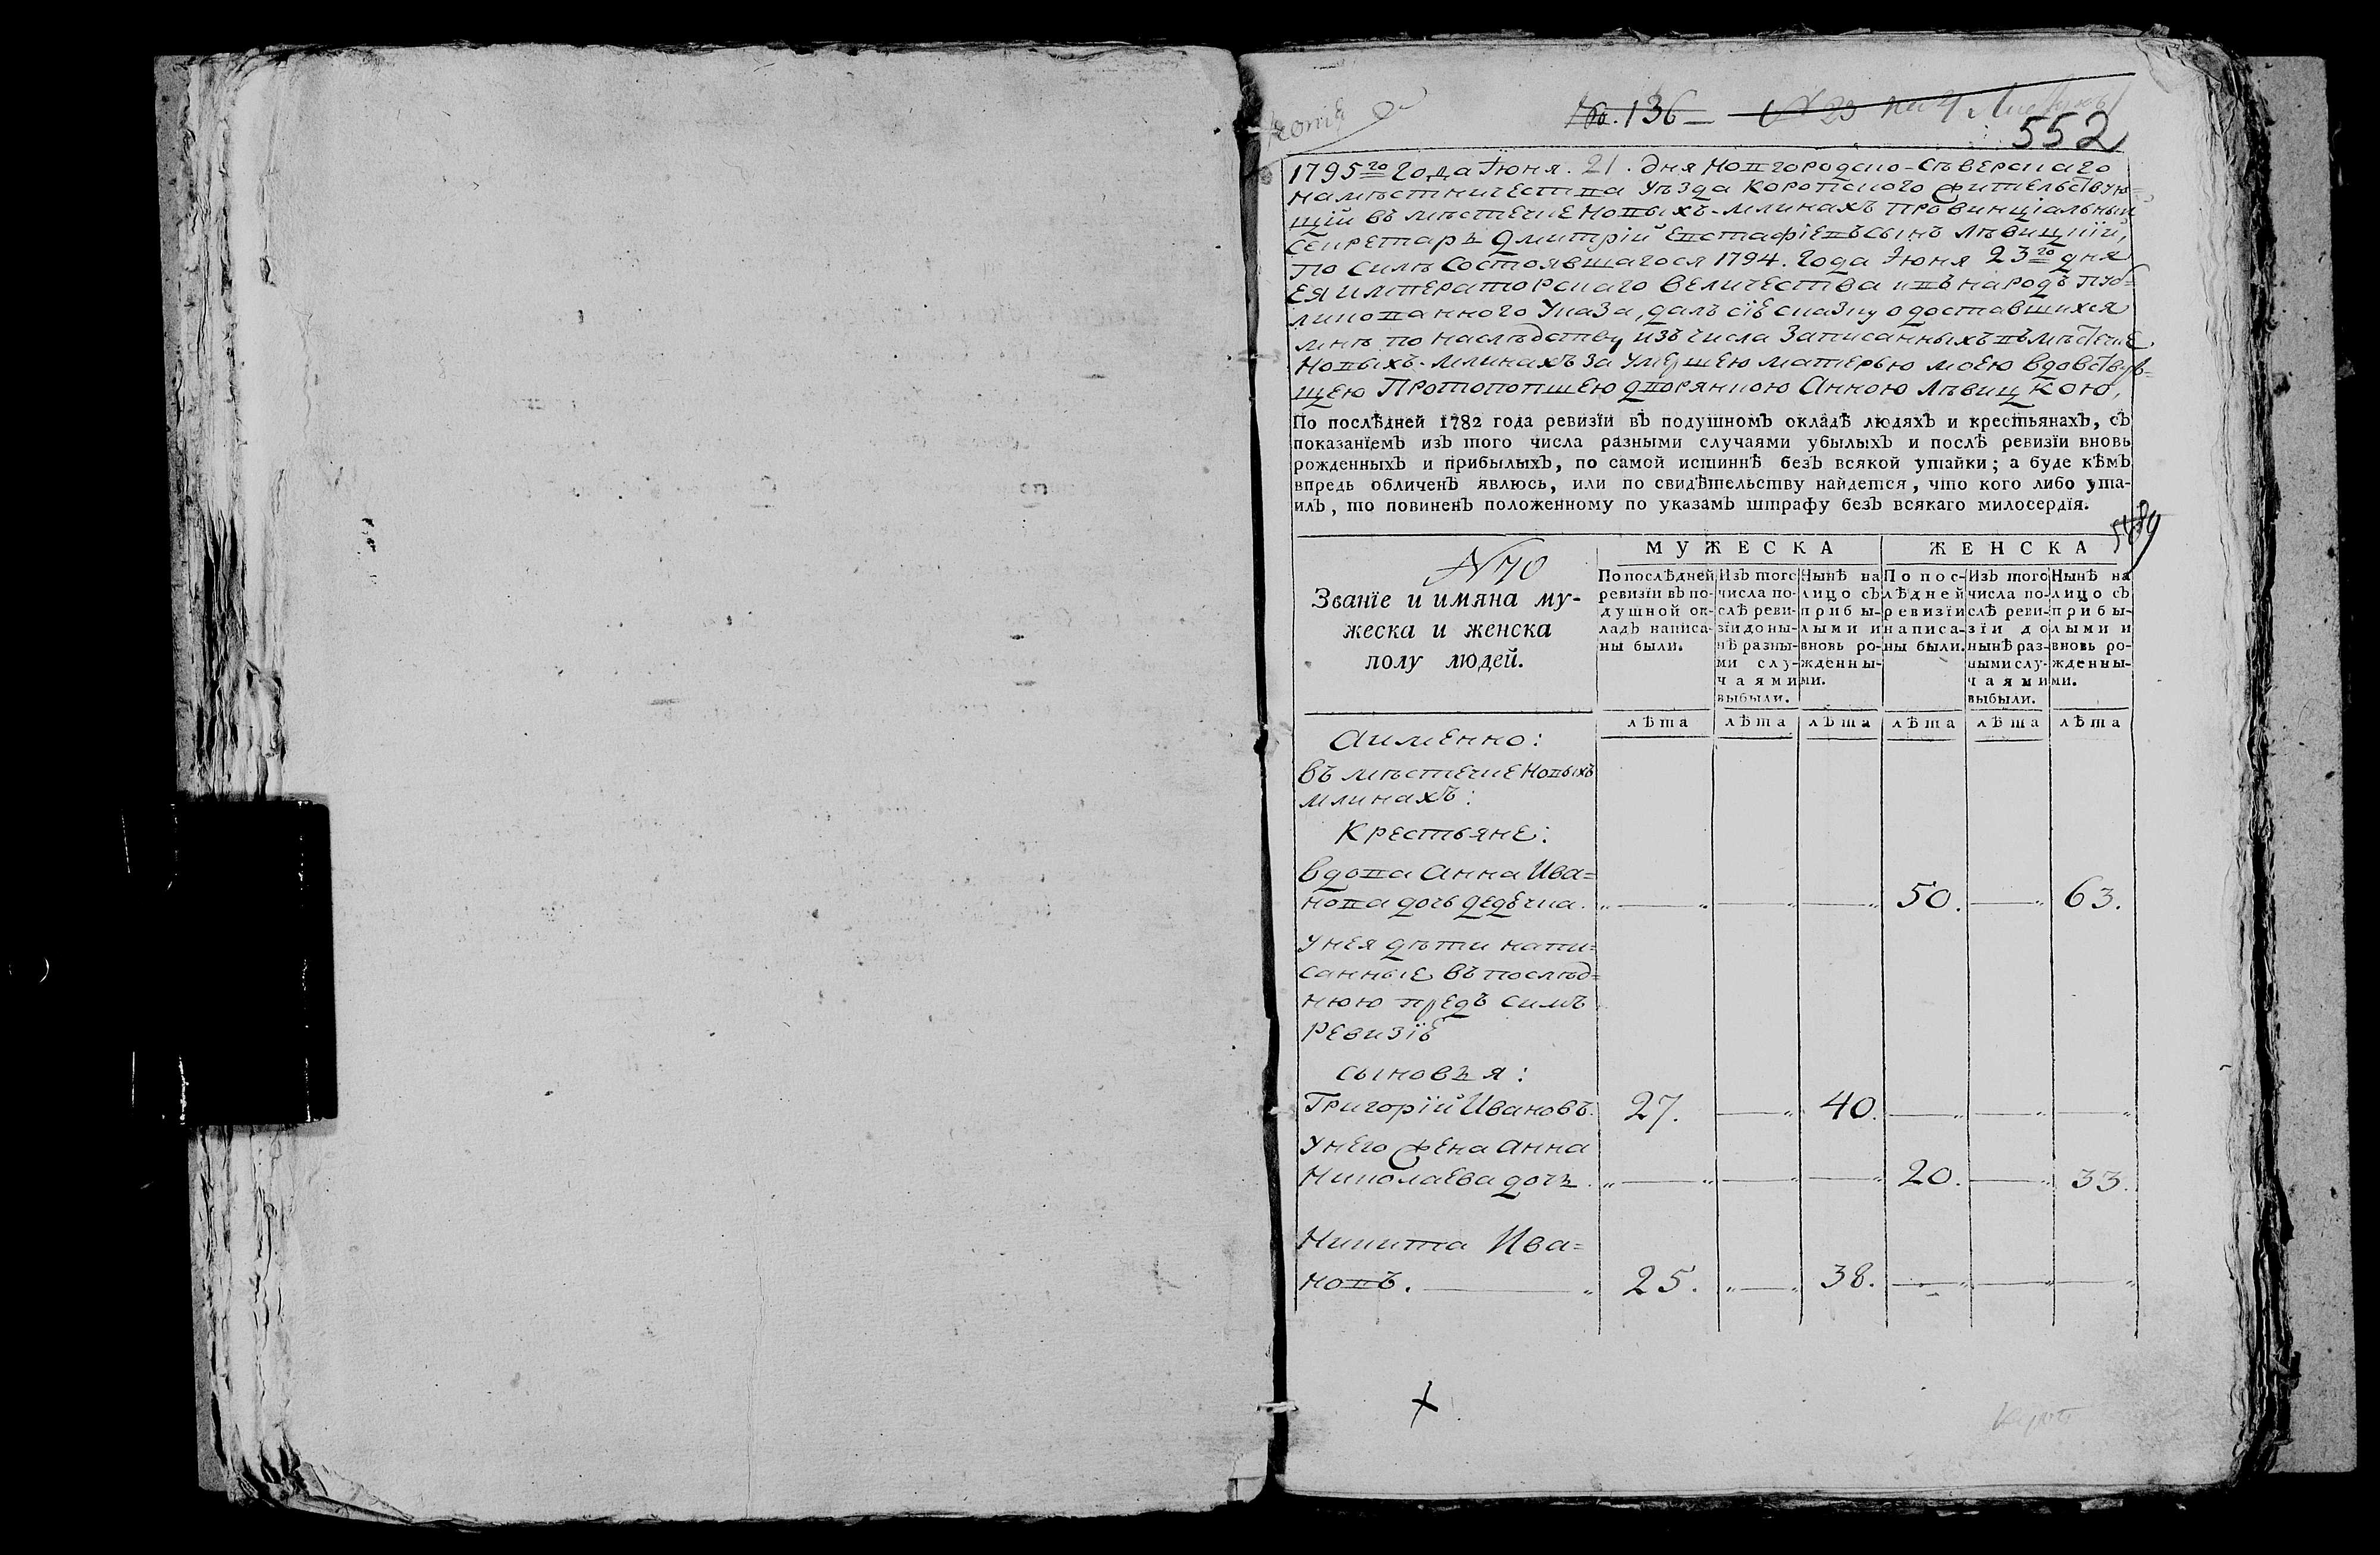 копія
136 – № 23 на 4
552
1795го года Июня. 21. дня Новгородско-Северскаго
наместничества уезда Коропского жительствую=
щій въ местечке Новыхъ-Млинахъ провинціальный
секретарь Дмитрій Евстафіевъ сынъ Левицкій,
по силе состоявшагося 1794. года Июня 23го дня
Ея Императорскаго Величества и въ народъ пуб=
ликованного указа, далъ сіе сказку о доставшихся
мне по наследству изъ числа записанныхъ въ местечке
Новыхъ-Млинахъ за умершею матерью моею вдовствую=
щею протопопшею дворянкою Анною Левицкою,
По послѣдней 1782 года ревизїи въ подушномъ окладѣ людяхъ и крестьянахъ, съ
показанїемъ изъ того числа разными случаями убылыхъ и послѣ ревизїи вновь
рожденныхъ и прибылыхъ, по самой истиннѣ безъ всякой утайки; а буде кѣмъ
впредь обличенъ явлюсь, или по свидѣтельству найдется, что кого либо ута-
илъ, то повиненъ положенному по указамъ штрафу безъ всякаго милосердїя.
МУЖЕСКА ЖЕНСКА
№ 70
Званїе и имяна му-
жеска и женска
полу людей.
По послѣдней ревизїи въ по-душной ок-ладъ написа-ны были.
Изъ того числа по-слѣ реви-зїи до ны-нѣ разны-ми слу-чаями выбыли.
Нынѣ на лицо съ прибы-лыми и вновь ро-жденны-ми.
По пос-лѣдней ревизїи написа-ны были.
Изъ того числа по-слѣ реви-зїи до нынѣ раз-ными слу-чаями выбыли.
Нынѣ на лицо съ прибы-лыми и вновь ро-жденны-ми.
лѣта лѣта лѣта лѣта лѣта лѣта
А именно:
въ местечке Новыхъ
Млинахъ:
Крестьяне:
вдова Анна Ива=
нова дочь Дедечка. 50. 63.
у нея дѣти напи=
санные въ послѣд=
нюю предъ симъ
ревизїе
сыновья:
Григорїй Ивановъ. 27. 40.
у него жена Анна
Николаева дочь. 20. 33.
Никита Ива=
новъ. 25. 38.